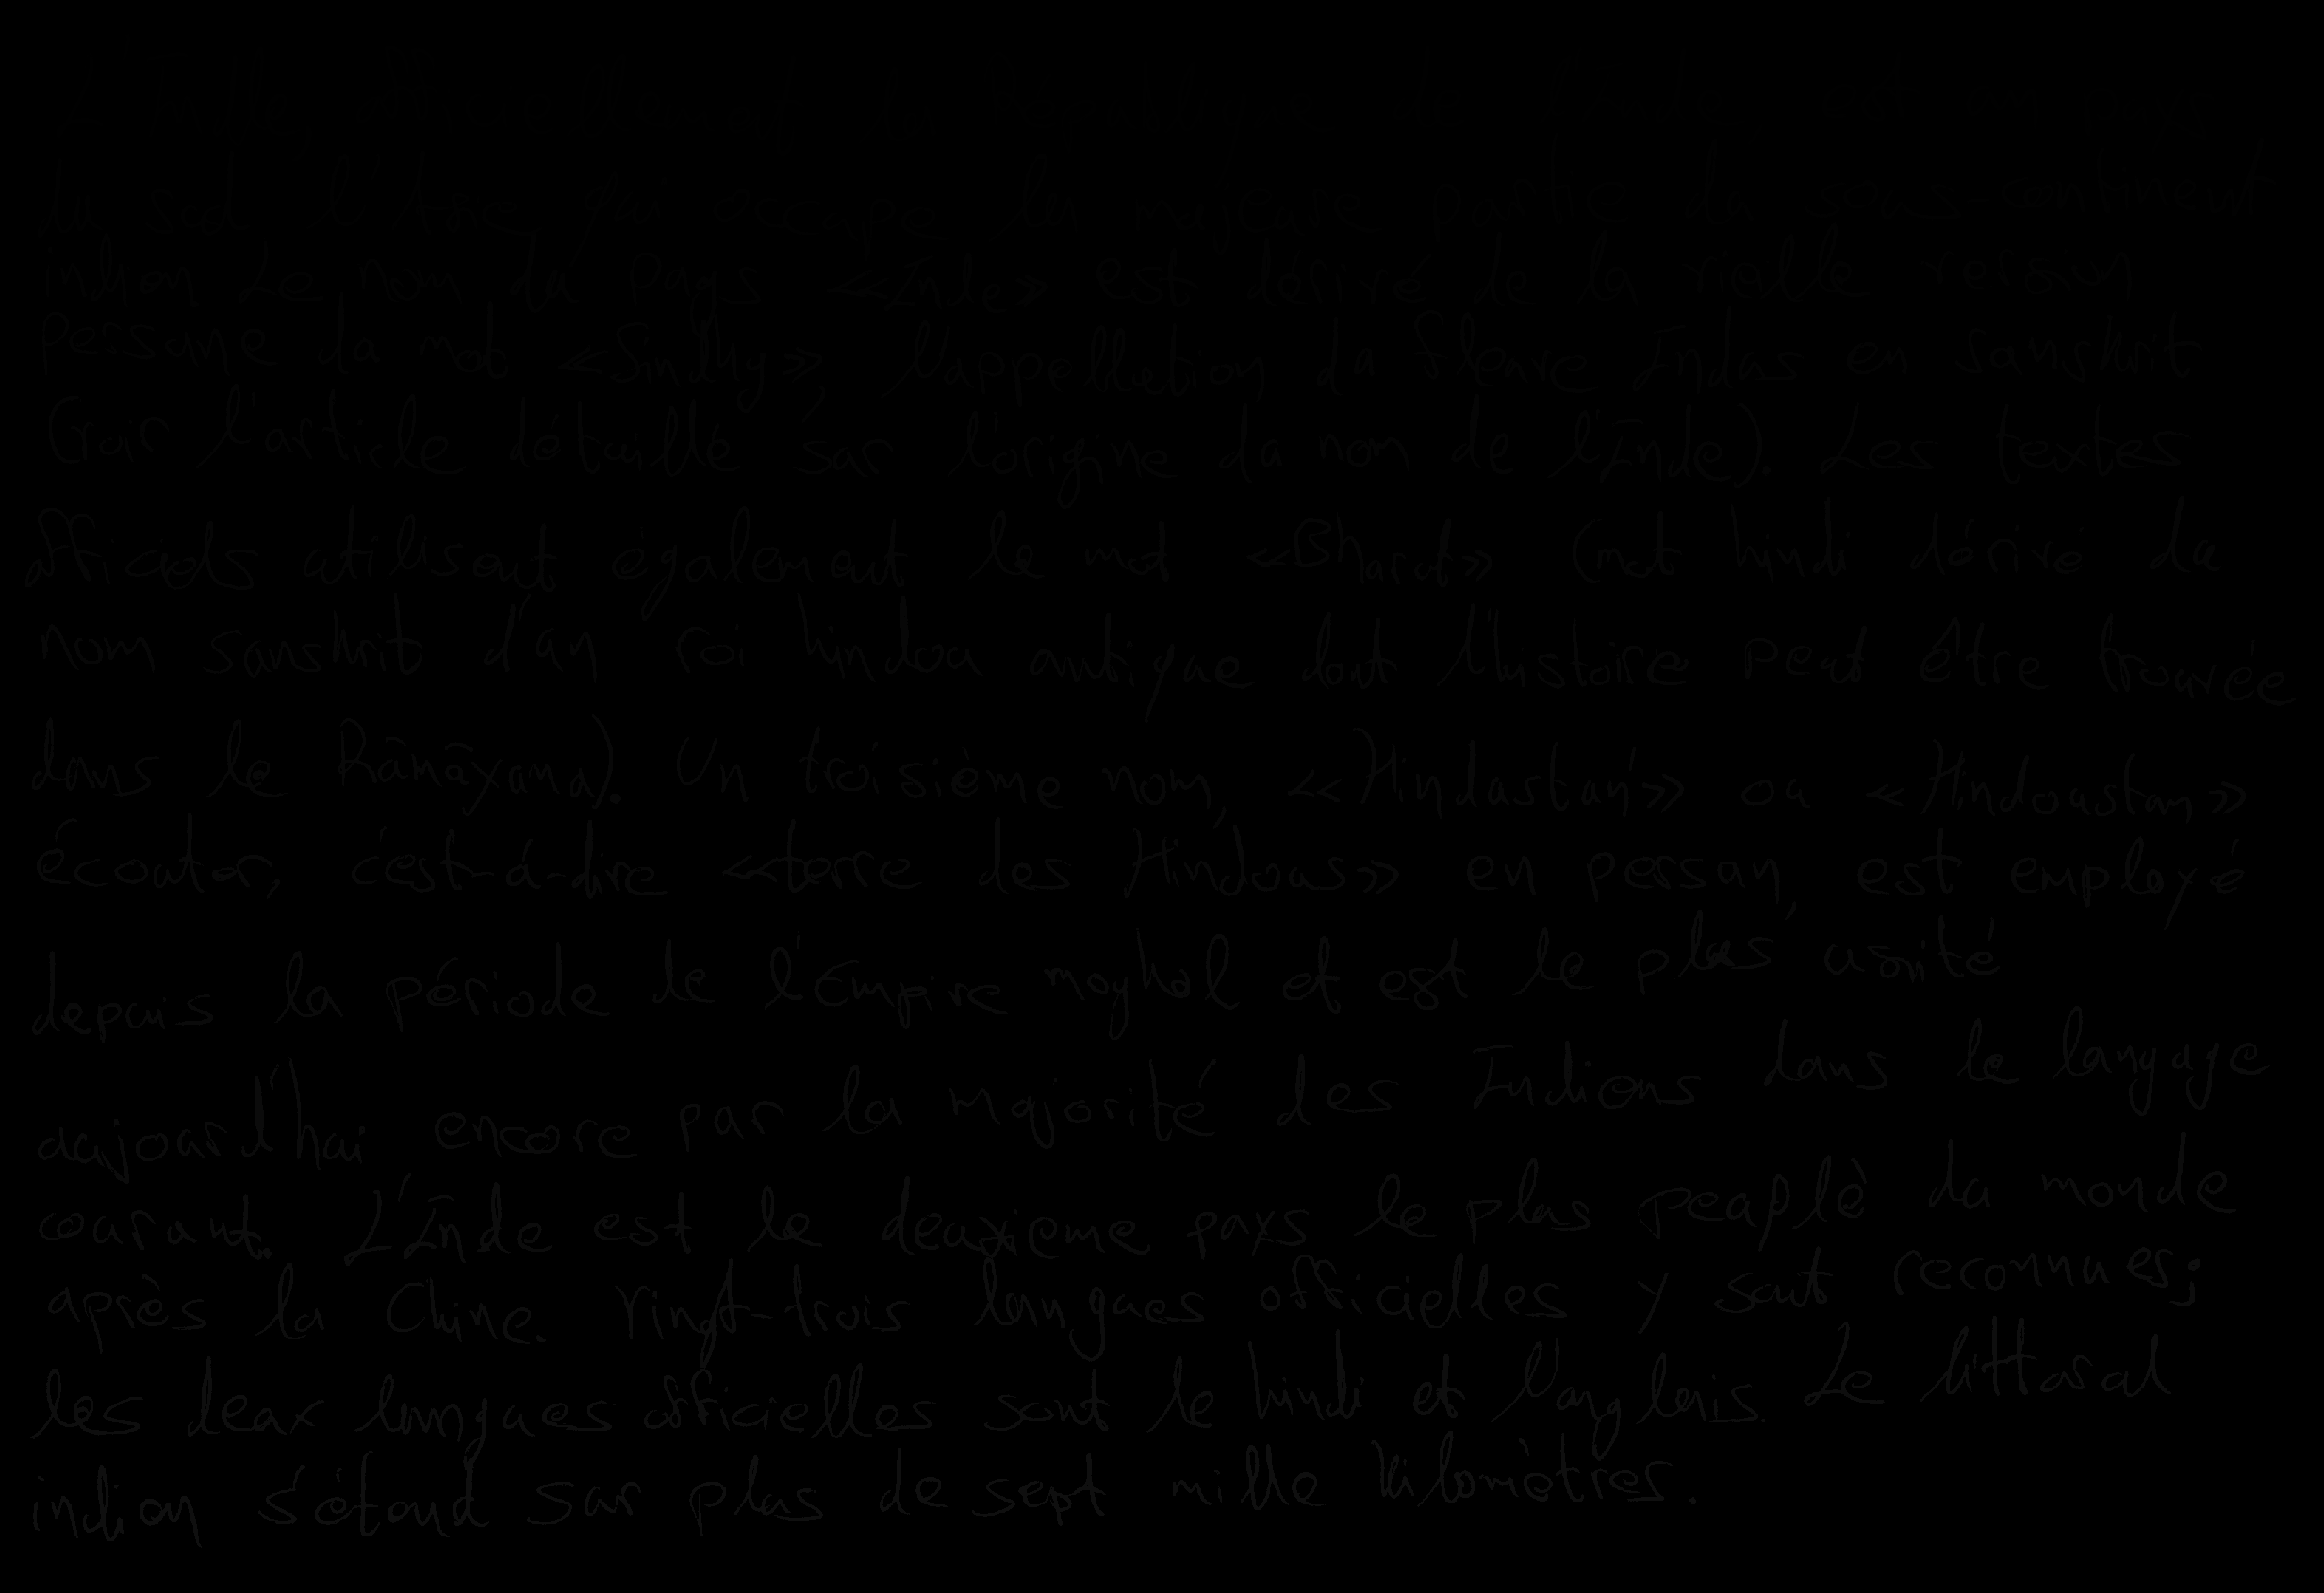 du sud l'Asie qui occupe la majeure partie du sous-continent
indien Le nom du Pays «Inde» est dérivé de la vielle version
Persane du mot «Sindhy», l'appelletion du fleuve Indus en sanskrit
(voir l'article détaillé sur l'origine du nom de l'Inde). Les textes
officiels utilisent également le mot «Bharat» (mot hindi dérivé du
nom sanskrit d'un roi hindou antique dont l'histoire peut être trouvée
dans le Râmâyana). Un troisième nom, «Hindustan» ou «Hindoustan»
écouter, c'est-à-dire «terre des Hindous» en persan, est employé
depuis la période de l'Empire moghol et est le plus usité
aujourd'hui encore par la majorité des Indiens dans le langage
courant. L'Inde est le deuxième pays le plus peuplé du monde
après la Chine. Vingt-trois langues officielles y sont reconnues;
les deux langues officielles sont le hindi et l'anglais. Le littoral
indien s'étend sur plus de sept mille kilomètres.